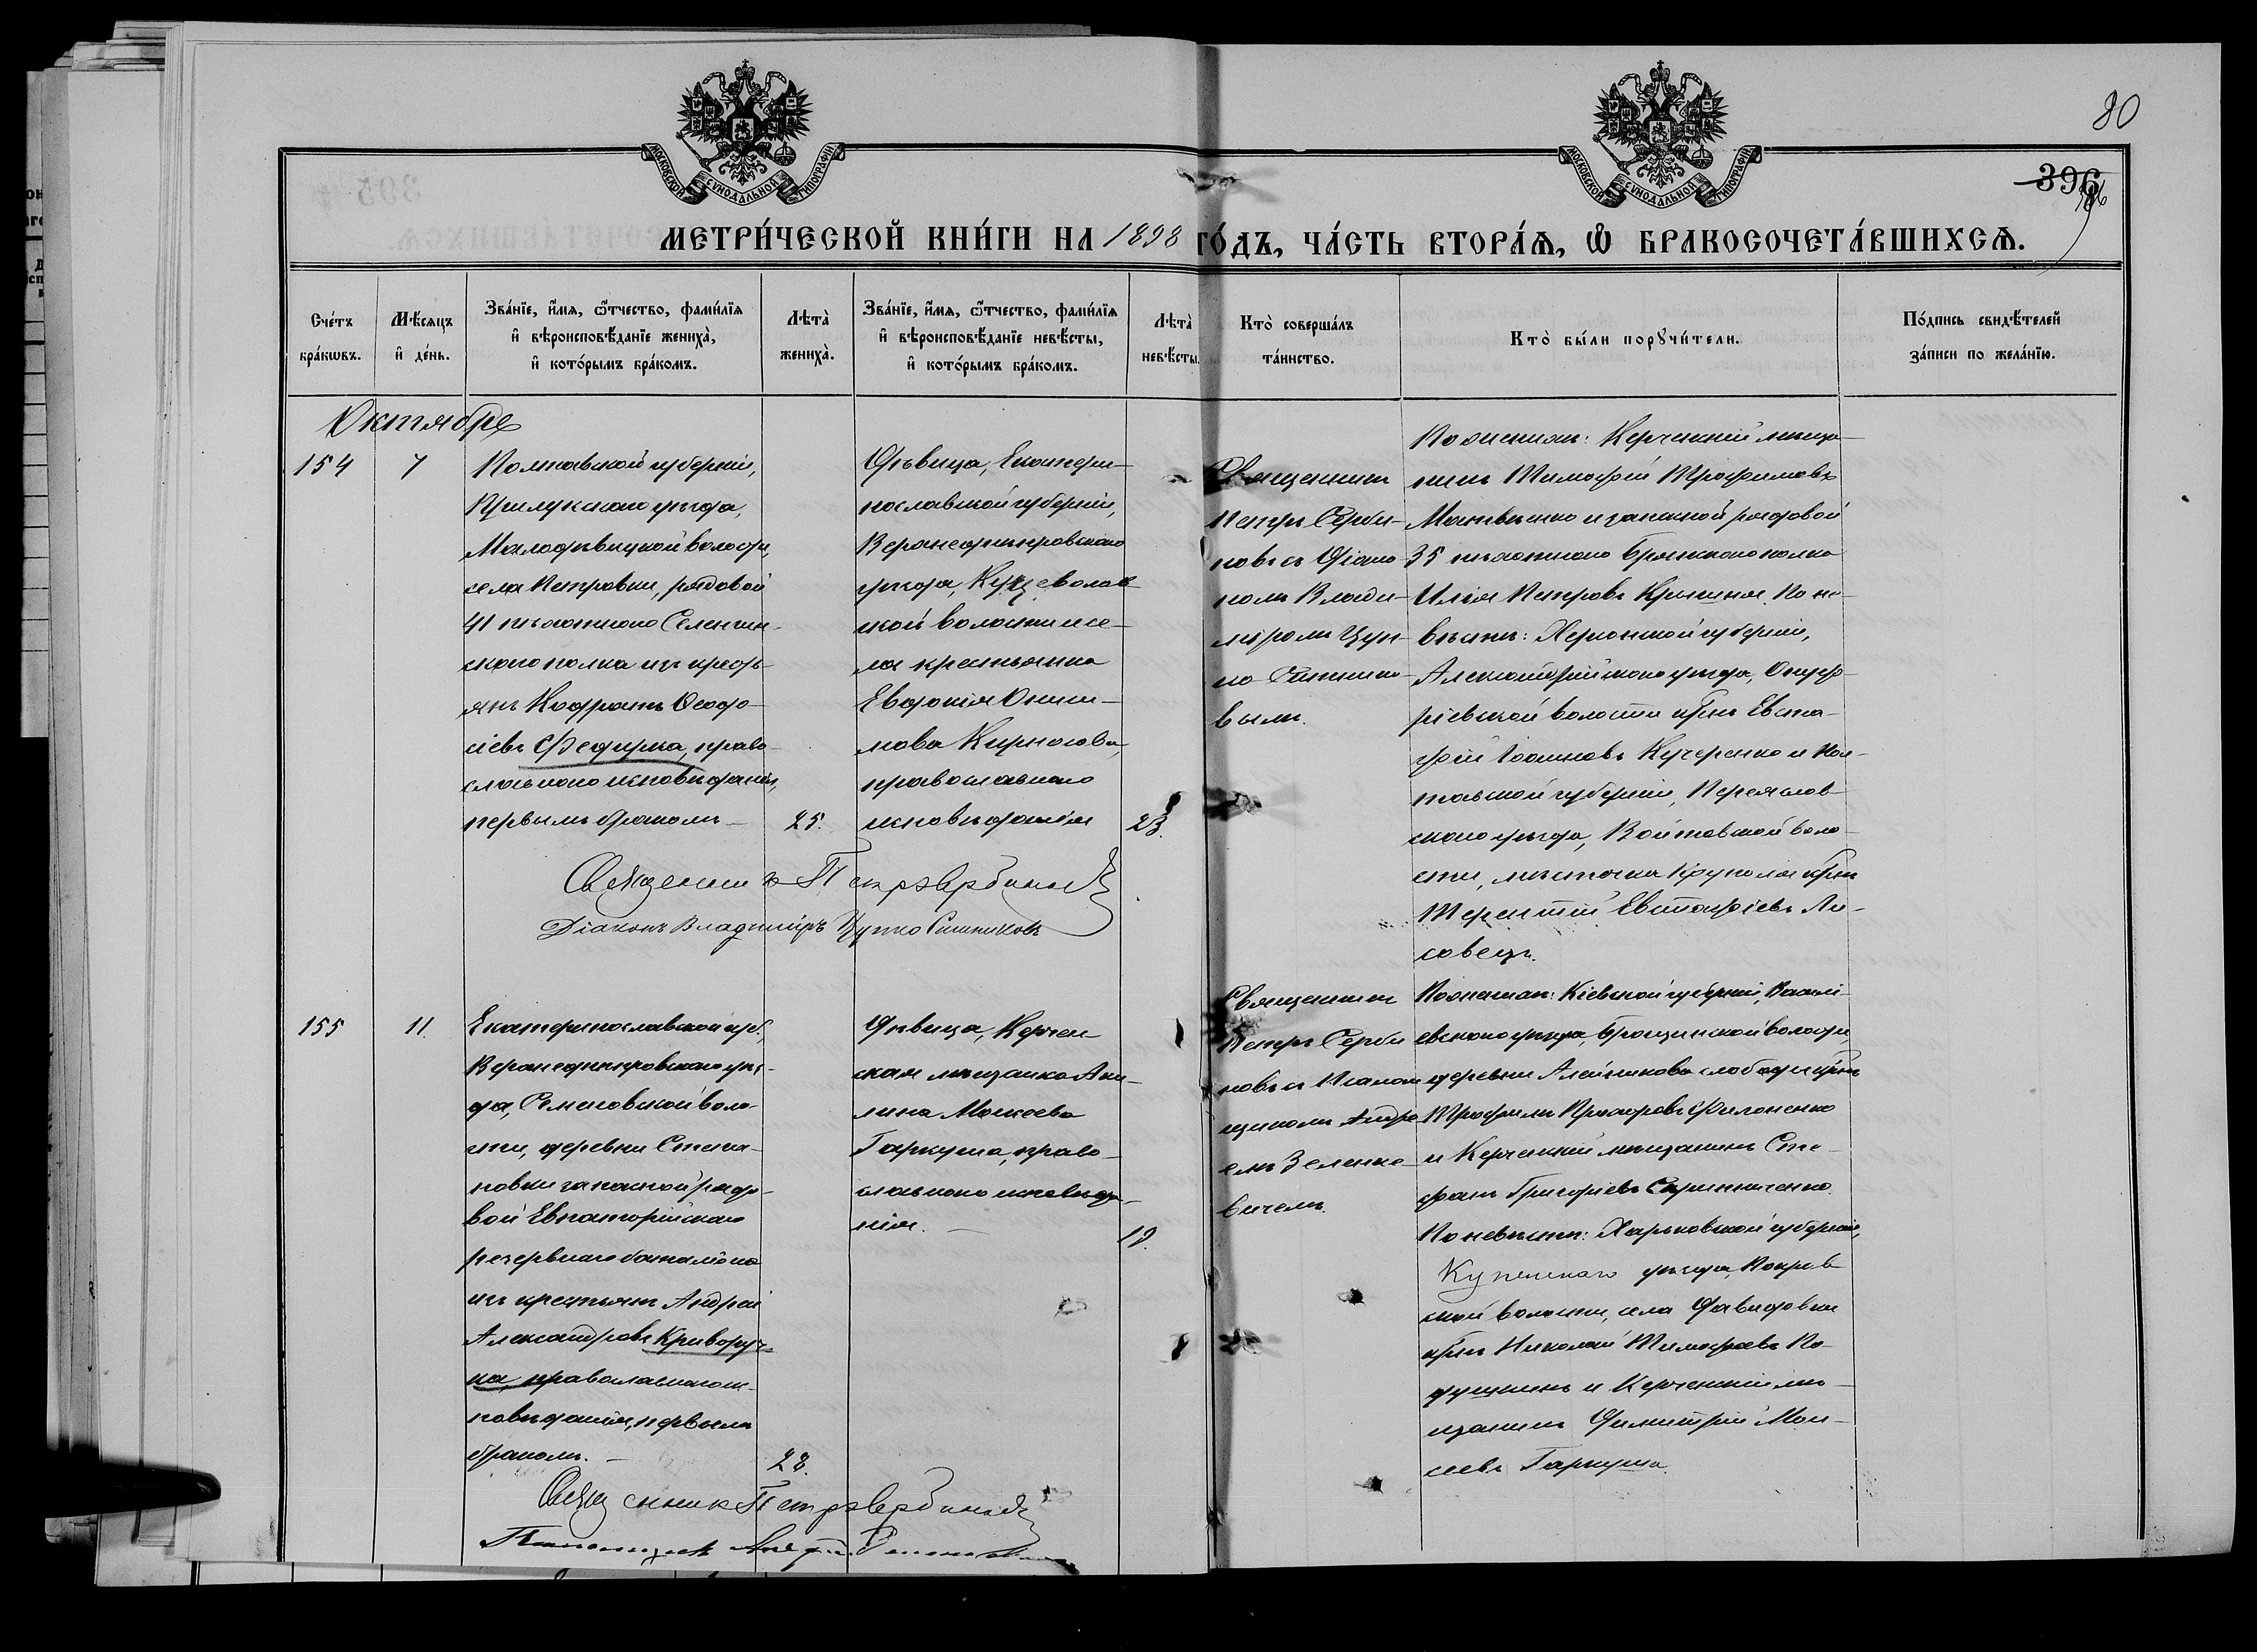 80
396
МОСКОВСКОЙ СѴНОДАЛЬНОЙ ТИПОГРАФІИ
МОСКОВСКОЙ СѴНОДАЛЬНОЙ ТИПОГРАФІИ
МЕТРИ́ЧЕСКОЙ КНИ́ГИ НА 1898 ГО́ДЪ, ЧА́СТЬ ВТОРА́Ѧ, Ѽ БРАКОСОЧЕТА́ВШИХСѦ.
Сче́тъ бра́кѡвъ.
Мѣ́сяцъ и҆ де́нь.
Зва́нїе, и҆́мя, ѻ҆́тчество, фами́лїя и҆ вѣроисповѣ́данїе жениха̀, и҆ кото́рымъ бра́комъ.
Лѣта̀ жениха̀.
Зва́нїе, и҆́мя, ѻ҆́тчество, фами́лїя и҆ вѣроисповѣ́данїе невѣ́сты, и҆ кото́рымъ бра́комъ.
Лѣта̀ невѣ́сты.
Кто̀ соверша́лъ та́инство.
Кто̀ бы́ли порꙋчи́тели.
По́дпись свидѣ́телей за́писи по жела́нїю.
Октябрь
154
7
Полтавской губерніи,
Прилукскаго уѣзда,
Малодѣвицкой волости,
села Петровки, рядовой
41 пѣхотнаго Селенгин-
скаго полка изъ крестьянъ
Кодратъ Ѳеодо-
сіевъ Федирка, право-
славнаго исповѣданія,
первымъ бракомъ
25.
Дѣвица, Екатери-
нославской губерніи,
Верхнеднѣпровскаго
уѣзда, Куцеволов-
ской волости и се-
ла крестьянка
Евдокія Ониси-
мова Кирносова,
православнаго
исповѣданія
23.
Священникъ
Петръ Серби-
новъ съ Діако-
номъ Влади-
міромъ Цуп-
ко-Ситнико-
вымъ.
По женихѣ: Керченскій мѣща-
нинъ Тимофей Трофимовъ
Матвѣенко и запасной рядовой
35 пѣхотнаго Брянскаго полка
Илія Петровъ Крыткня. По не-
вѣстѣ: Херсонской губерніи,
Александрійскаго уѣзда, Онуф-
ріевской волости крнъ Евста-
фій Іоанновъ Кучеренко и Пол-
тавской губерніи, Переяслов-
скаго уѣзда, Войтовской воло-
сти, мѣстечка Круполя крнъ
Терентій Евстафіевъ Ли-
совецъ.
Священникъ Петръ Сербиновъ
Діаконъ Владиміръ Цупко Ситниковъ
155
11.
Екатеринославской губ.,
Верхнеднѣпровскаго уѣз-
да, Семеновской воло-
сти, деревни Степа-
новки запасной рядо-
вой Евпаторійскаго
резервнаго баталіона
изъ крестьянъ Андрей
Александровъ Криворуч-
ка, православнаго ис-
повѣданія, первымъ
бракомъ.
28.
Дѣвица, Керчен-
ская мѣщанка Аки-
лина Моисеева
Гаркуша, право-
славнаго исповѣда-
нія.
19.
Священникъ
Петръ Серби-
новъ съ Псалом-
щикомъ Андре-
емъ Зеленке-
вичемъ.
По женихѣ: Кіевской губерніи, Васильк-
овскаго уѣзда, волости,
деревни слободы крнъ
Трофимъ Прохоровъ Филоненко
и Керченскій мѣщанинъ Сте-
фанъ Григоріевъ Скрипниченко.
По невѣстѣ: Харьковской губерніи,
Купянскаго уѣзда, Покров-
ской волости, села Давидовки
крнъ Николай Тимофеевъ По-
душкинъ и Керченскій мѣ-
щанинъ Димитрій Мои-
сеевъ Гаркуша.
Священникъ Петръ Сербиновъ
Псаломщикъ Андрей